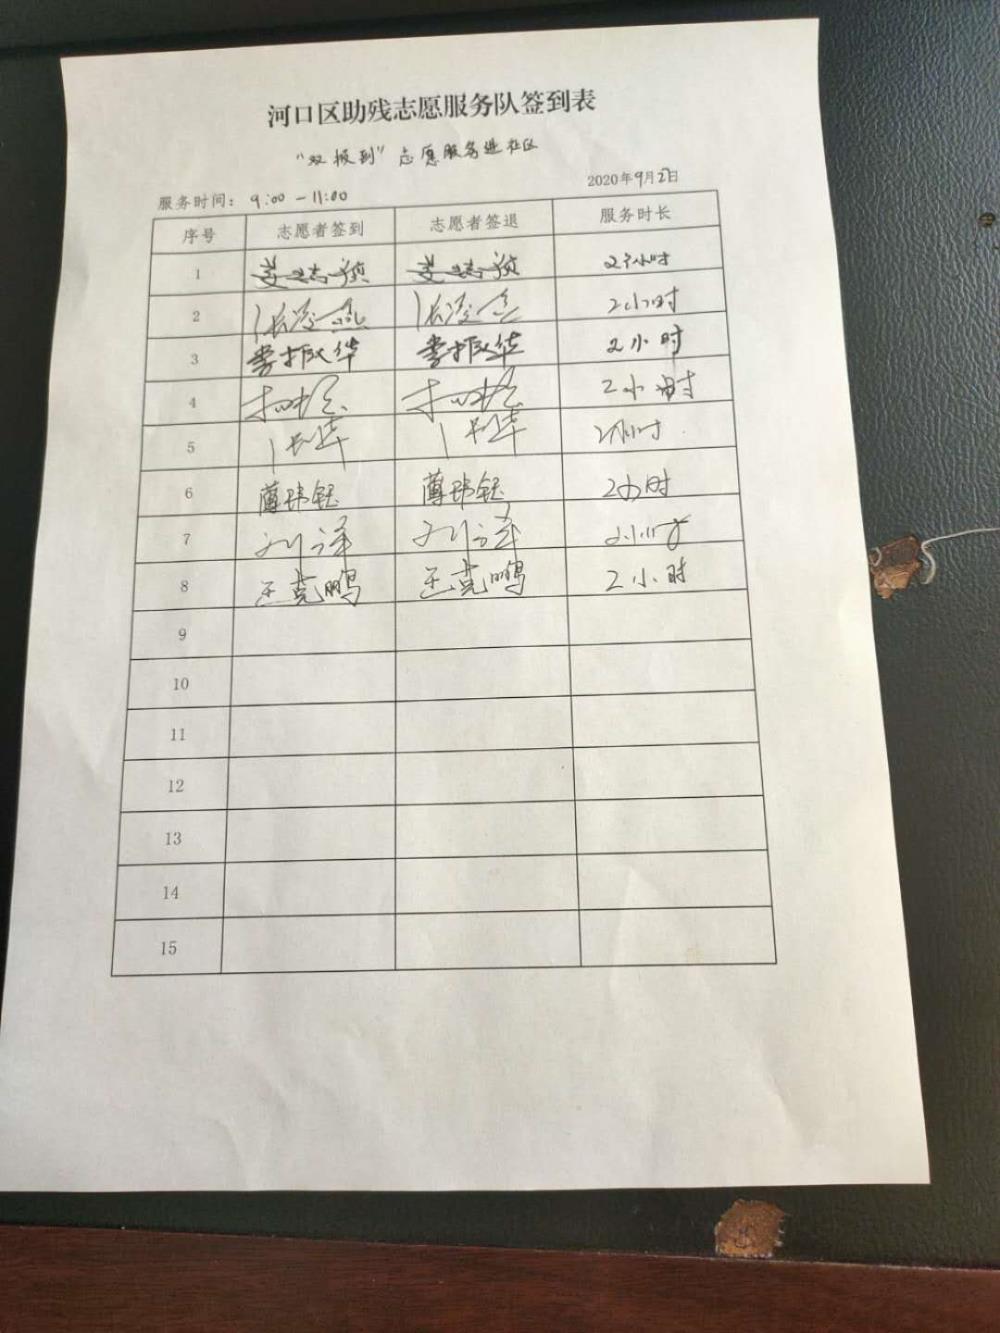 河口区助残志愿服务队签到表
"双报到"志愿服务进社区
服务时间：9:00－11:00 2020年9月2日
序号 志愿者签到 志愿者签退 服务时长
1 2个小时
2 2小时
3 李振华 李振华 2小时
4 2小时
5 2小时
6 薄玮钰 薄玮钰 2小时
7 刘洋 刘洋 2小时
8 王克鹏 王克鹏 2小时
9
10
11
12
13
14
15